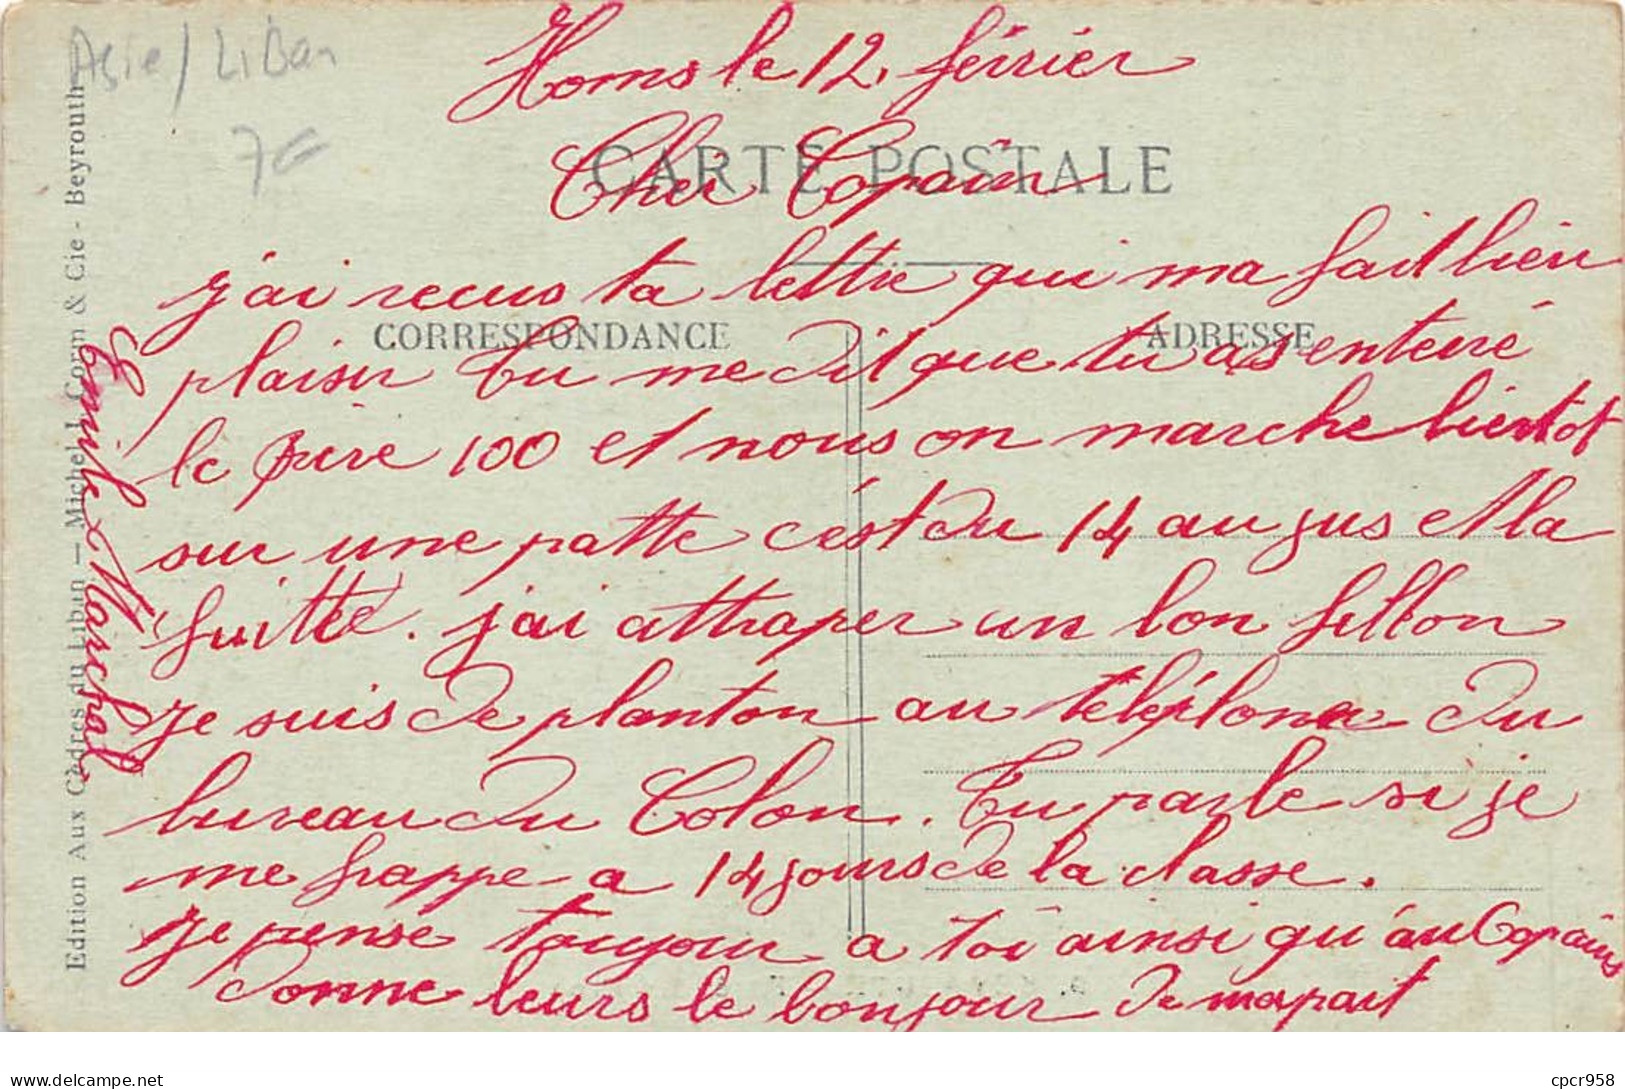 Asie / Liban
7€
Homs le 12 février
CARTE POSTALE
Cher Copain
j'ai recus ta lettre qui ma fait bien
CORRESPONDANCE
ADRESSE
plaisir tu me dit que tu as enterré
le père 100 et nous on marche bientot
sur une patte c'est du 14 au jus et la
fuitte. j'ai attraper un bon fillon
je suis de planton au téléphone du
bureau du Colon. Tu parle si je
me frappe a 14 jours de la classe.
je pense toujour a toi ainsi qu'au Copains
donne leurs le bonjour de ma part
Emile Marchal
Edition Aux Cèdres du Liban — Michel I. Corm & Cie - Beyrouth
delcampe.net
cpcr958